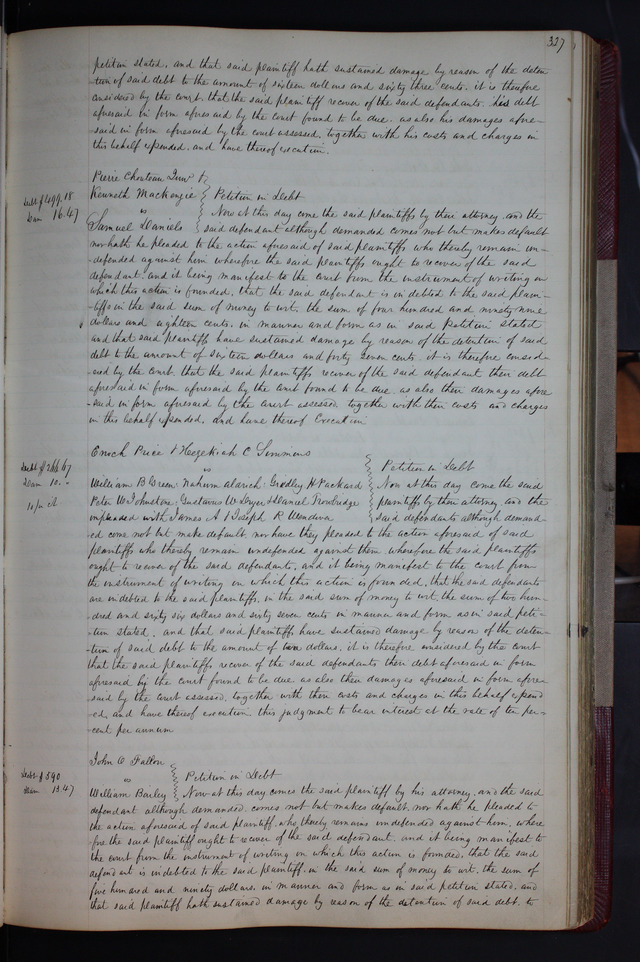 337
petition stated, and that said plaintiff hath sustained damage by reason of the deten
tion of said debt to the amount of sixteen dollars and sixty three cents. it is therefore
considered by the court, that the said plaintiff recover of the said defendants his debt
aforesaid in form aforesaid by the court found to be due, as also his damages afore-
said in form aforesaid by the court assessed, together with his costs and charges in
this behalf expended, and have thereof execution.
Pierre Chouteau Junr &
Debt $499.18
Kenneth Mackenzie Petition in Debt
Dam 16.47
vs Now at this day come the said plaintiffs by their attorney, and the
Samuel Daniels said defendant although demanded comes not but makes default
nor hath he pleaded to the action aforesaid of said plaintiffs, who thereby remain un-
defended against him wherefore the said plaintiffs ought to recover of the said
defendant. and it being manifest to the court from the instrument of writing on
which this action is founded, that the said defendant is indebted to the said plain-
tiffs in the said sum of money to wit, the sum of four hundred and ninety nine
dollars and eighteen cents, in manner and form as in said Petition stated
and that said plaintiffs have sustained damage by reason of the detention of said
debt to the amount of sixteen dollars and forty seven cents. it is therefore consid-
ered by the court, that the said plaintiffs recover of the said defendant their debt
aforesaid in form aforesaid by the court found to be due, as also their damages afore
said in form aforesaid by the court assessed together with their costs and charges
in this behalf expended, and have thereof Execution
Enoch Price & Hezekiah C Simmons
Debt $266 67
vs Petition in Debt
Dam 10.
William B Green, Nahum Aldrich, Gridley H Packard Now at this day come the said
10 pr ct
Peter W Johnstone, Gustavus W Dryer & Daniel Trowbridge plaintiffs by their attorney and the
impleaded with James A & Joseph R said defendants although demand-
ed come not but make default, nor have they pleaded to the action aforesaid of said
plaintiffs who thereby remain undefended against them, wherefore the said plaintiffs
ought to recover of the said defendants, and it being manifest to the court from
the instrument of writing on which this action is founded, that the said defendants
are indebted to the said plaintiffs, in the said sum of money to wit the sum of two hun-
dred and sixty six dollars and sixty seven cents in manner and form as in said peti-
tion stated, and that said plaintiffs have sustained damage by reason of the deten-
tion of said debt to the amount of ten dollars, it is therefore considered by the court
that the said plaintiffs recover of the said defendants their debt aforesaid in form
aforesaid by the court found to be due as also their damages aforesaid in form afore-
said by the court assessed, together with their costs and charges in this behalf expend
ed, and have thereof execution this judgment to bear interest at the rate of ten per-
cent per annum
John O Fallon
Debt $590
vs Petition in Debt
Dam 13.47
William Bailey Now at this day comes the said plaintiff by his attorney, and the said
defendant although demanded, comes not but makes default, nor hath he pleaded to
the action aforesaid of said plaintiff, who thereby remains undefended against him, where
fore the said plaintiff ought to recover of the said defendant, and it being manifest to
the court from the instrument of writing on which this action is founded, that the said
defendant is indebted to the said plaintiff, in the said sum of money to wit, the sum of
five hundred and ninety dollars, in manner and form as in said petition stated, and
that said plaintiff hath sustained damage by reason of the detention of said debt, to